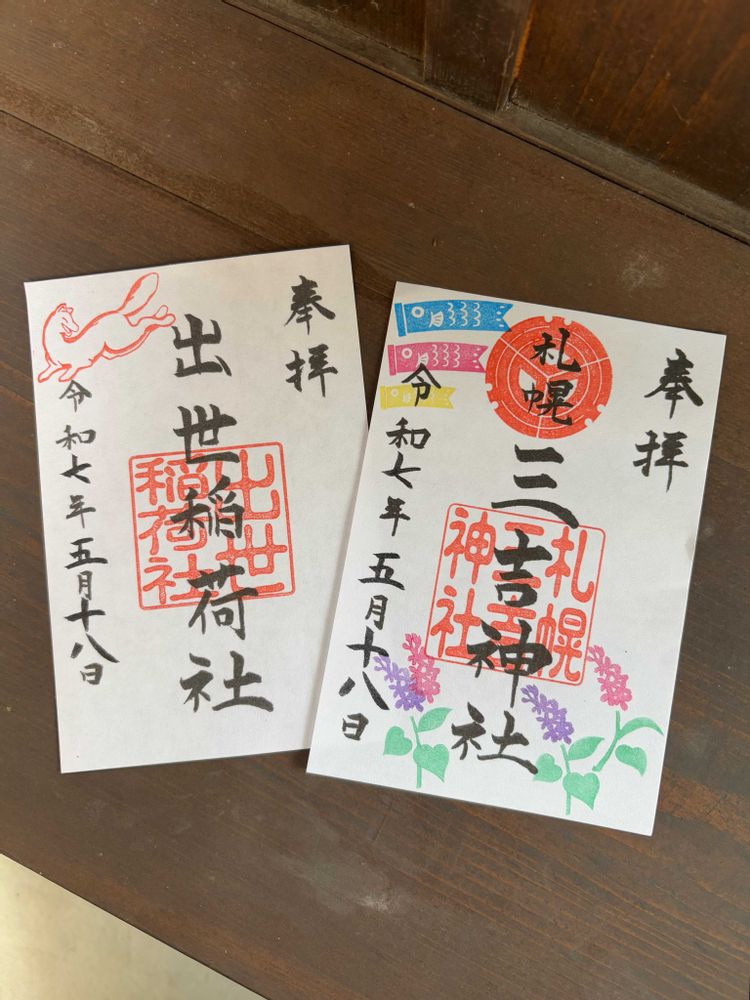 奉拝
出世稲荷社
出世
稲荷社
令和七年五月十八日
奉拝
札幌
三吉神社
札幌
三吉
神社
令和七年五月十八日